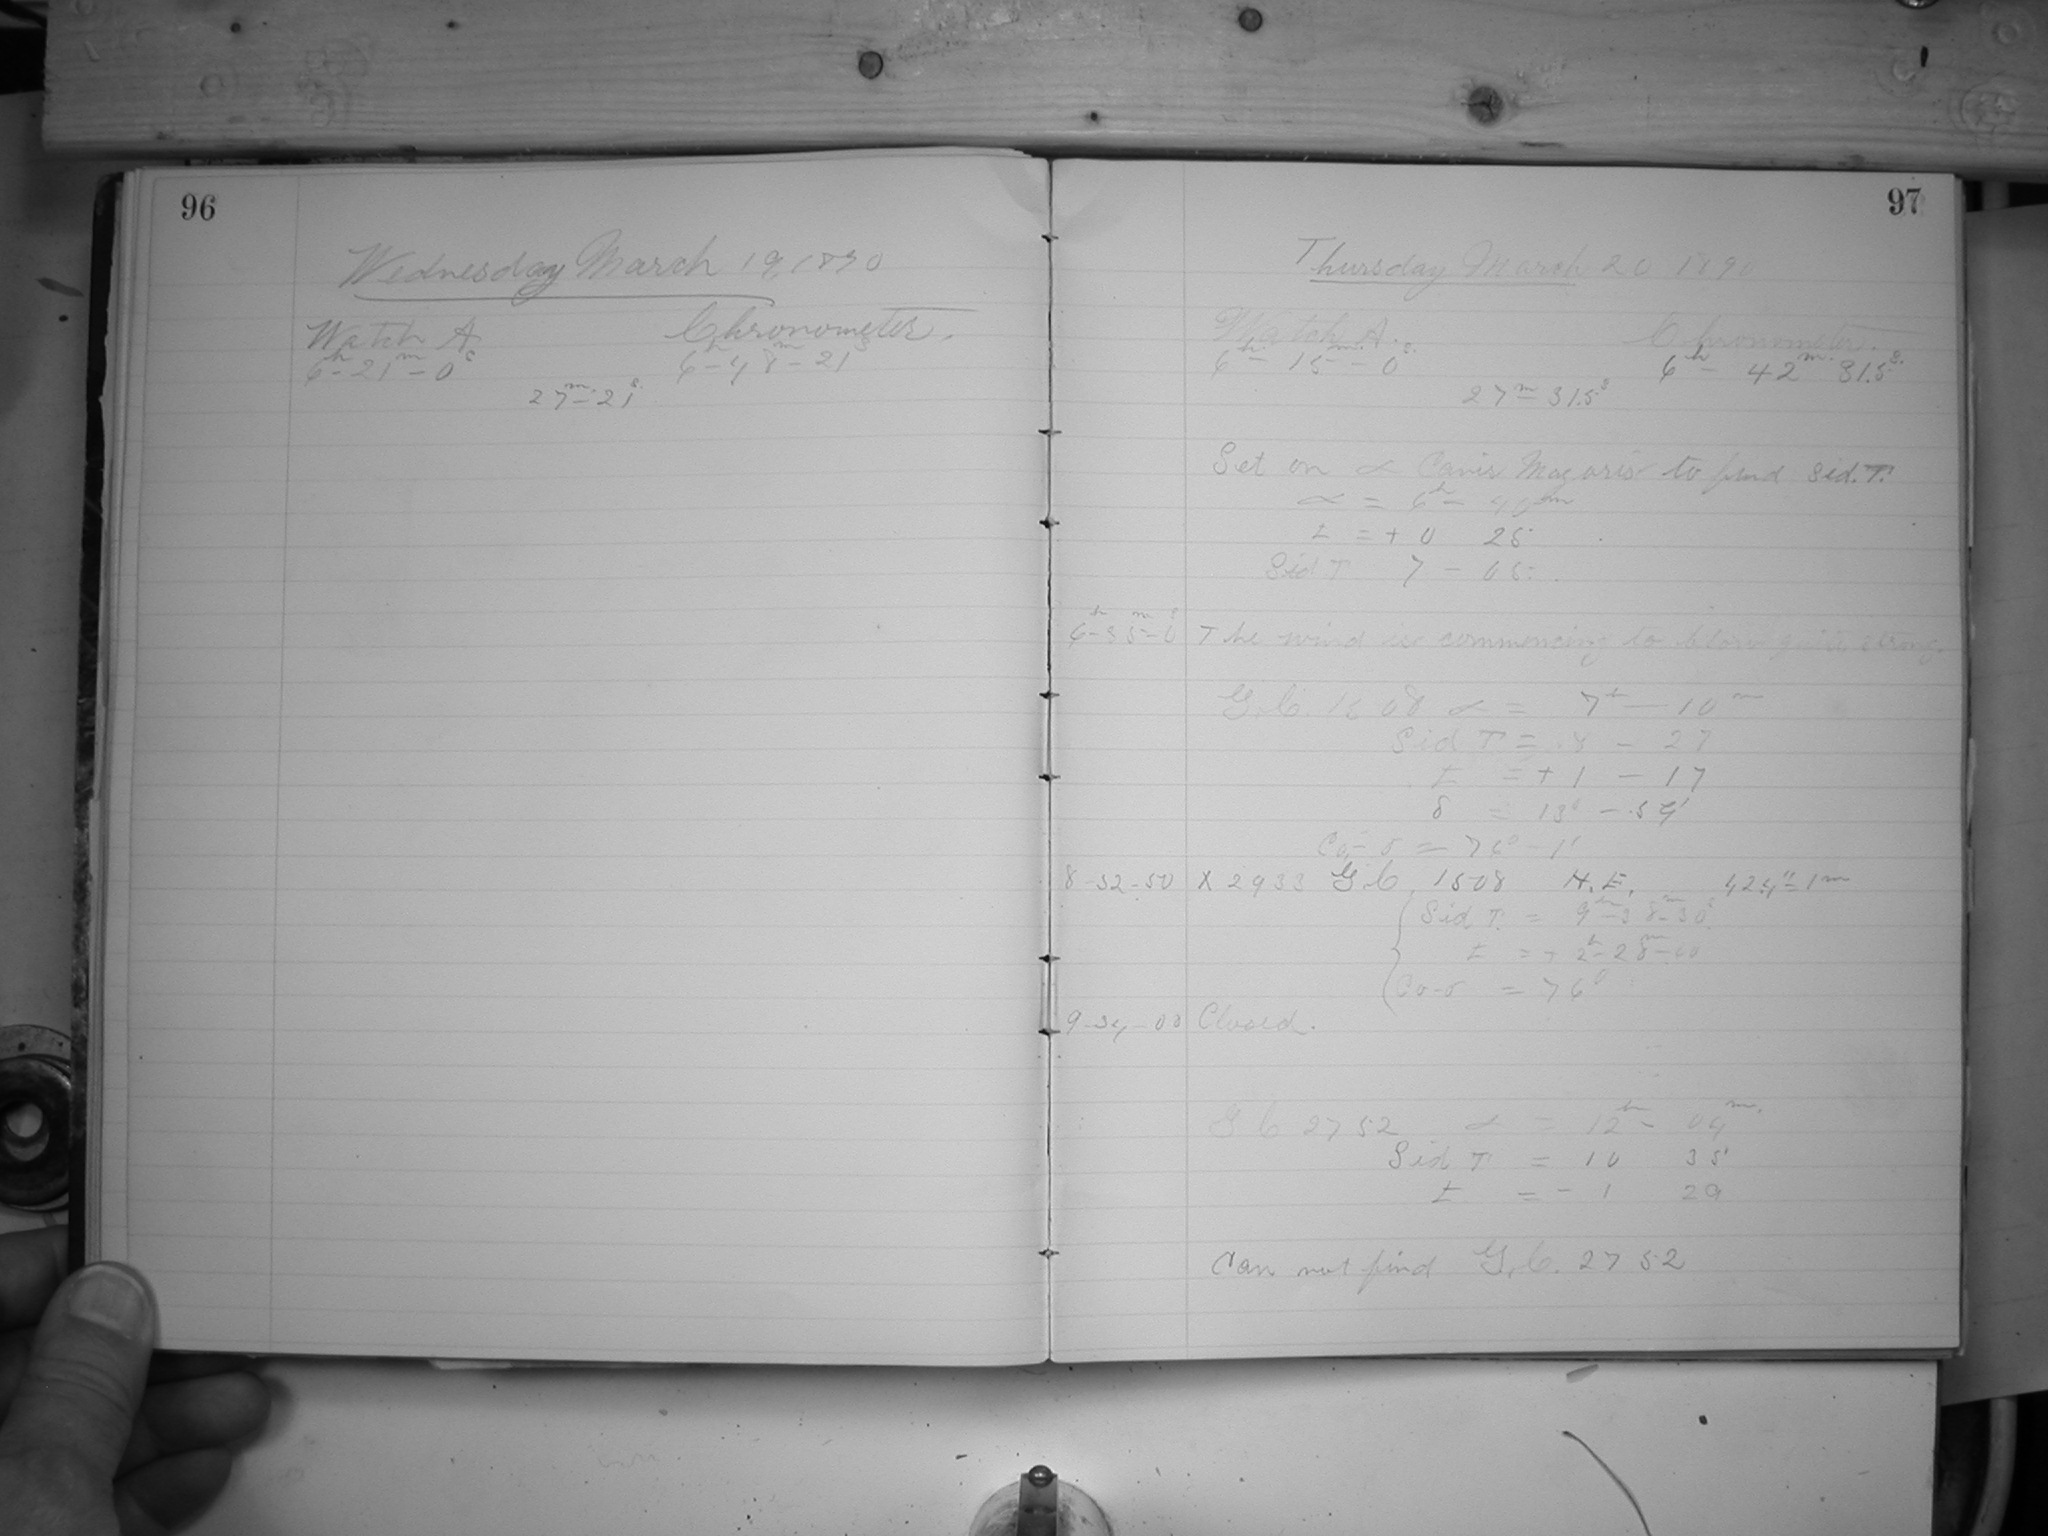 96
Wednesday March 19, 1890
Watch A. Chronometer.
6h-21m-0s 6h-48m-21s
27m-21s
97
Thursday March 20 1890
Watch A. Chronometer.
6h- 15m- 0s 6h- 42m 31.5s
27m 31.5s
Set on α Canis Magoris to find Sid. T.
α = 6h- 40m
t = + 0 25
Sid T 7 - 05
6h-35m-0s The wind is commencing to blow quite strong.
G.C. 1508 α = 7h - 10m
Sid T = 8 - 27
t = + 1 - 17
δ = 13° - 59'
Co-δ = 76° - 1'
8-52-50 X 2933 G.C. 1508 H.E. 424"=1m
Sid T. = 9h-38m-30s
t = + 2h-28m-
Co-δ = 76°
9-34-00 Closed.
G C 2752 α = 12h- 04m
Sid T = 10 35
t = - 1 29
Can not find G.C. 2752